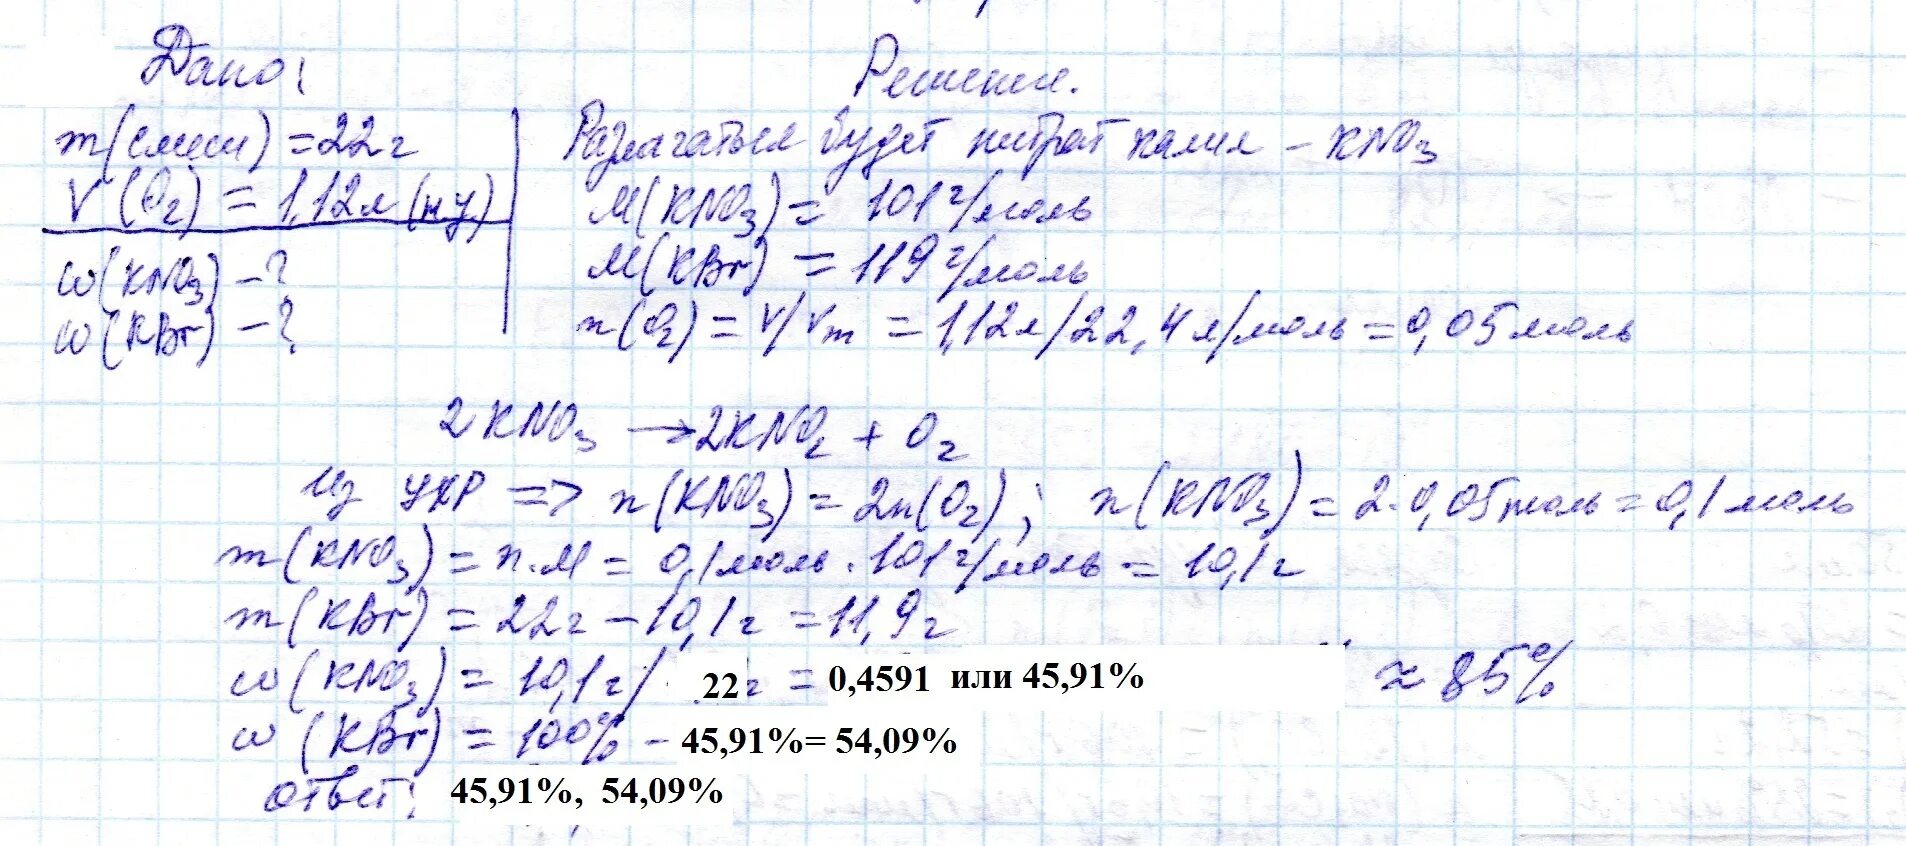 Дано:
m(смеси) = 22г
V(O₂) = 1,12л (ну)
ω(KNO₃) – ?
ω(KBr) – ?
Решение.
Разлагаться будет нитрат калия – KNO₃
M(KNO₃) = 101г/моль
M(KBr) = 119г/моль
n(O₂) = V/Vm = 1,12л/22,4л/моль = 0,05моль
2KNO₃ → 2KNO₂ + O₂
Из УХР => n(KNO₃) = 2n(O₂); n(KNO₃) = 2·0,05моль = 0,1моль
m(KNO₃) = n·M = 0,1моль·101г/моль = 10,1г
m(KBr) = 22г – 10,1г = 11,9г
ω(KNO₃) = 10,1г/ 22г = 0,4591 или 45,91% ≈ 85%
ω(KBr) = 100% – 45,91%= 54,09%
Ответ: 45,91%, 54,09%